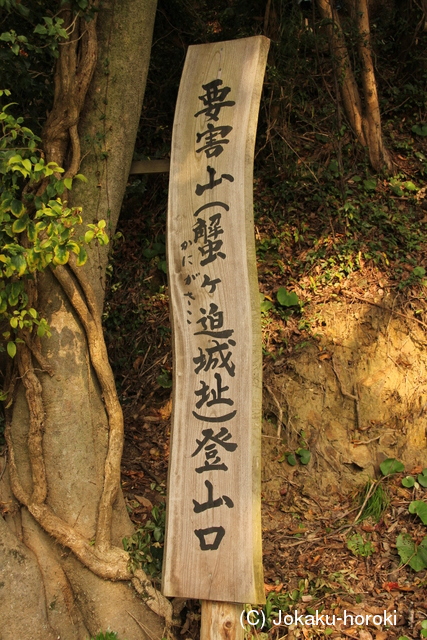 要害山(蟹ヶ迫城址)登山口
かにがさこ
(C) Jokaku-horoki